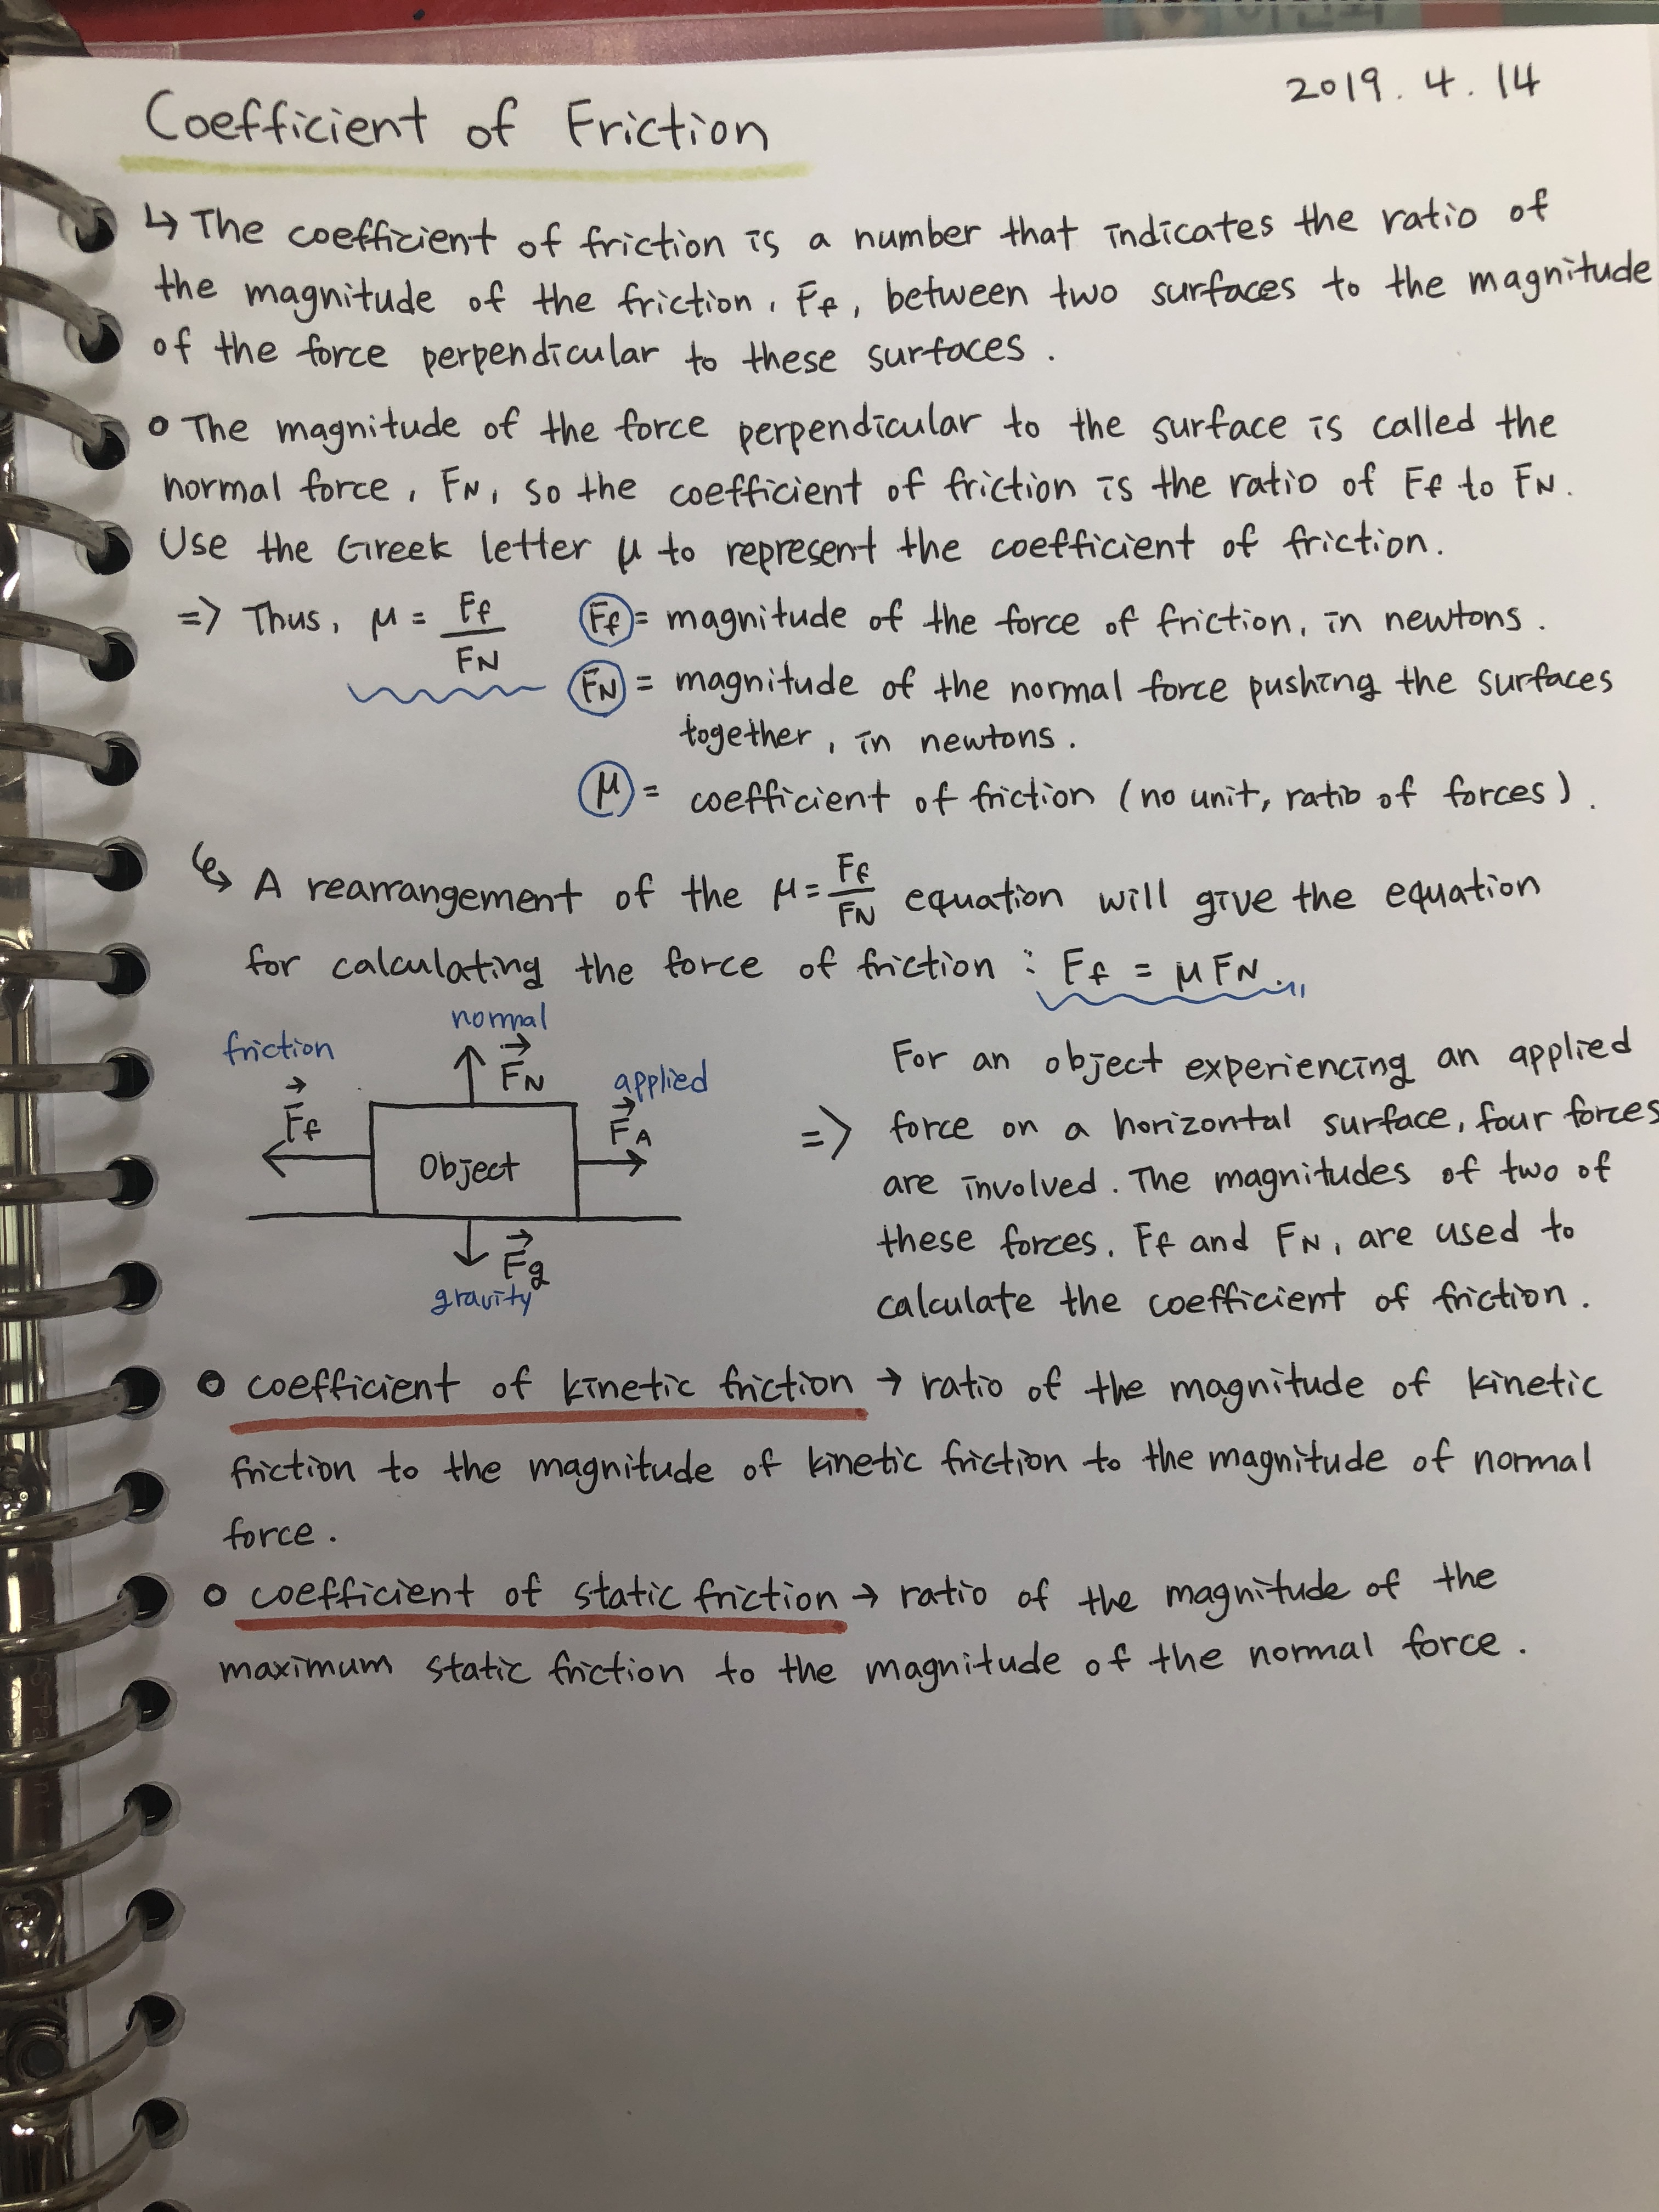 2019. 4. 14
Coefficient of Friction
↳ The coefficient of friction is a number that indicates the ratio of
the magnitude of the friction, Ff, between two surfaces to the magnitude
of the force perpendicular to these surfaces.
o The magnitude of the force perpendicular to the surface is called the
normal force, FN, so the coefficient of friction is the ratio of Ff to FN.
Use the Greek letter μ to represent the coefficient of friction.
=> Thus, μ = Ff/FN
Ff = magnitude of the force of friction, in newtons.
FN = magnitude of the normal force pushing the surfaces
together, in newtons.
μ = coefficient of friction (no unit, ratio of forces).
↳ A rearrangement of the μ = Ff/FN equation will give the equation
for calculating the force of friction : Ff = μFN.
normal
friction
→FN
applied
→Ff
→FA
Object
→Fg
gravity
For an object experiencing an applied
=> force on a horizontal surface, four forces
are involved. The magnitudes of two of
these forces. Ff and FN, are used to
calculate the coefficient of friction.
o coefficient of kinetic friction → ratio of the magnitude of kinetic
friction to the magnitude of kinetic friction to the magnitude of normal
force.
o coefficient of static friction → ratio of the magnitude of the
maximum static friction to the magnitude of the normal force.